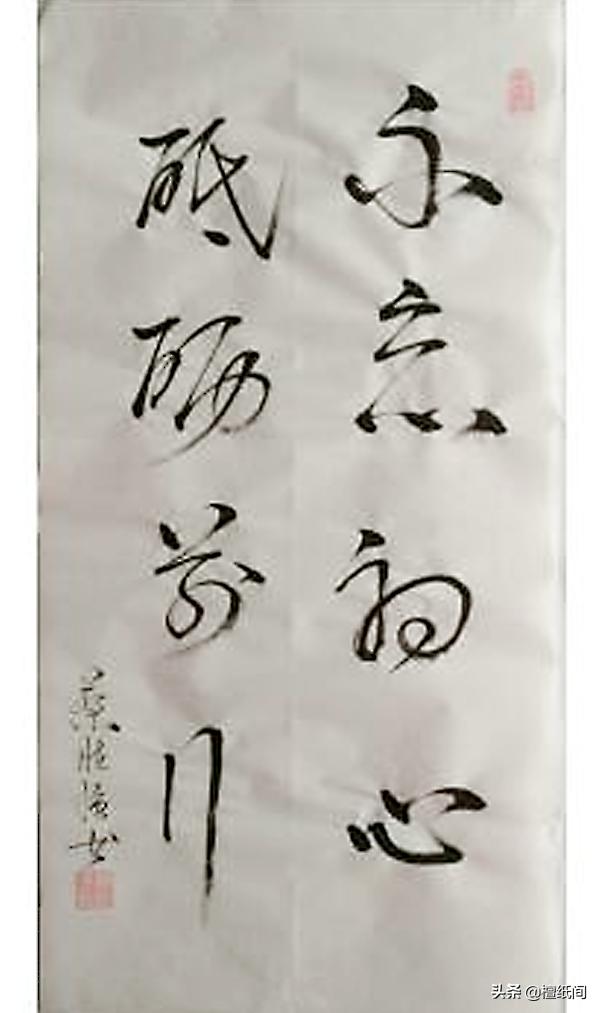 不忘初心
砥砺前行
头条 @檀纸间